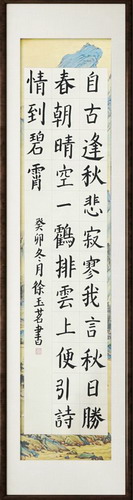 自古逢秋悲寂寥我言秋日勝
春朝晴空一鶴排雲上便引詩
情到碧霄
癸卯冬月徐玉茗書